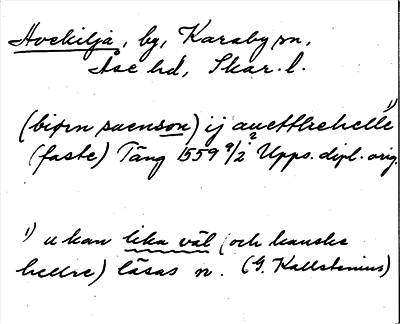 Avekilja, by, Karaby sn,
Åse hd, Skar. l.
(biørn suenson) ij auetthekelle 1)
(faste) Täng 1559 9/2 Upps. dipl. orig.
1) u kan lika väl (och kanske
hellre) läsas n. (G. Kallstenius)